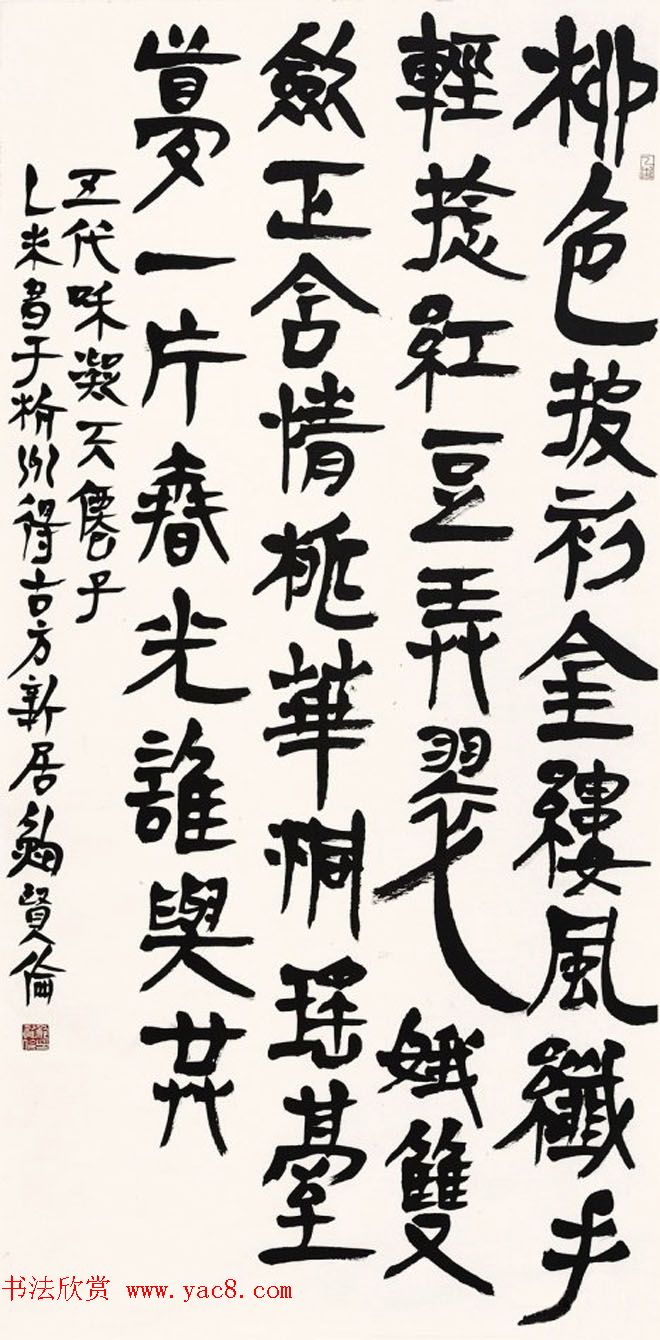 柳色披衫金縷風纖手
輕捻紅豆弄翠娥雙
斂正含情桃華洞瑤臺
夢一片春光誰與共
五代和凝天僊子
乙未書于杭州得古方新居鮑賢倫
书法欣赏 www.yac8.com